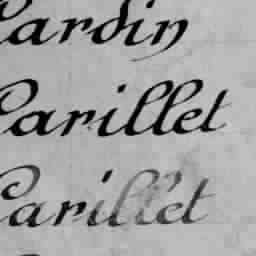 Cardin
Carillet
Carillet